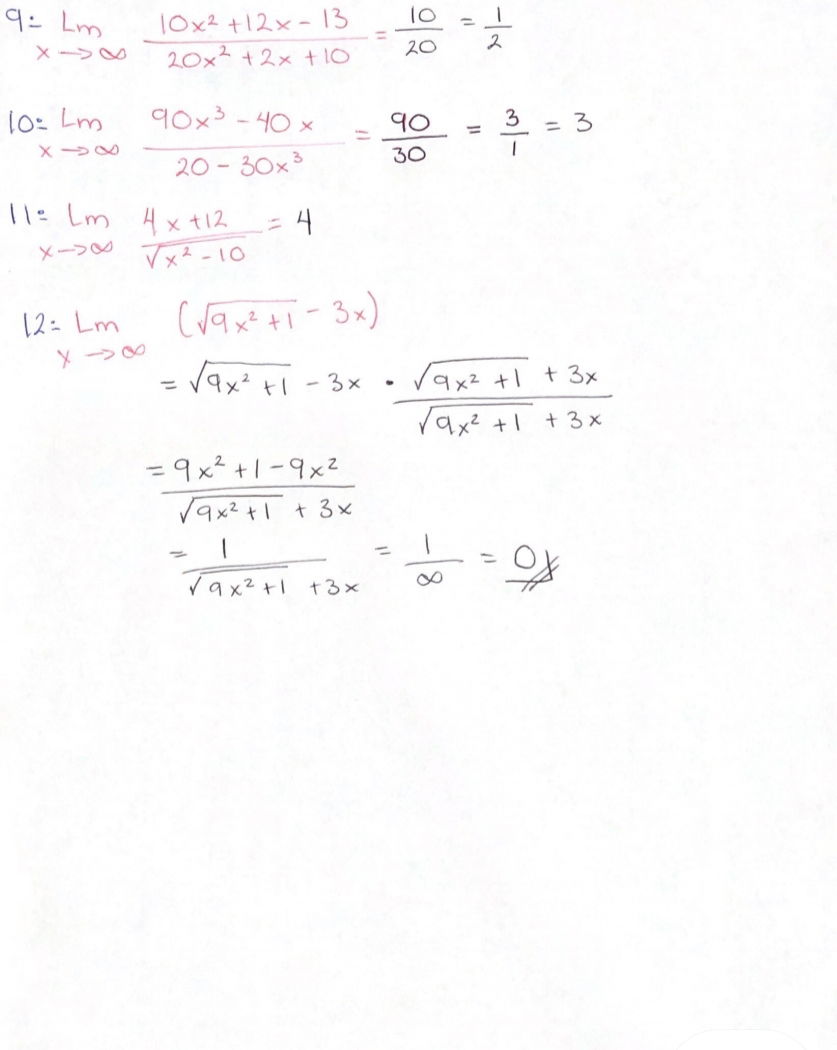 9= Lm x→∞ (10x² + 12x - 13)/(20x² + 2x + 10) = 10/20 = 1/2
10= Lm x→∞ (90x³ - 40x)/(20 - 30x³) = 90/30 = 3/1 = 3
11= Lm x→∞ (4x + 12)/√(x² - 10) = 4
12= Lm x→∞ (√(9x² + 1) - 3x)
= √(9x² + 1) - 3x • (√(9x² + 1) + 3x)/(√(9x² + 1) + 3x)
= (9x² + 1 - 9x²)/(√(9x² + 1) + 3x)
= 1/(√(9x² + 1) + 3x) = 1/∞ = 0